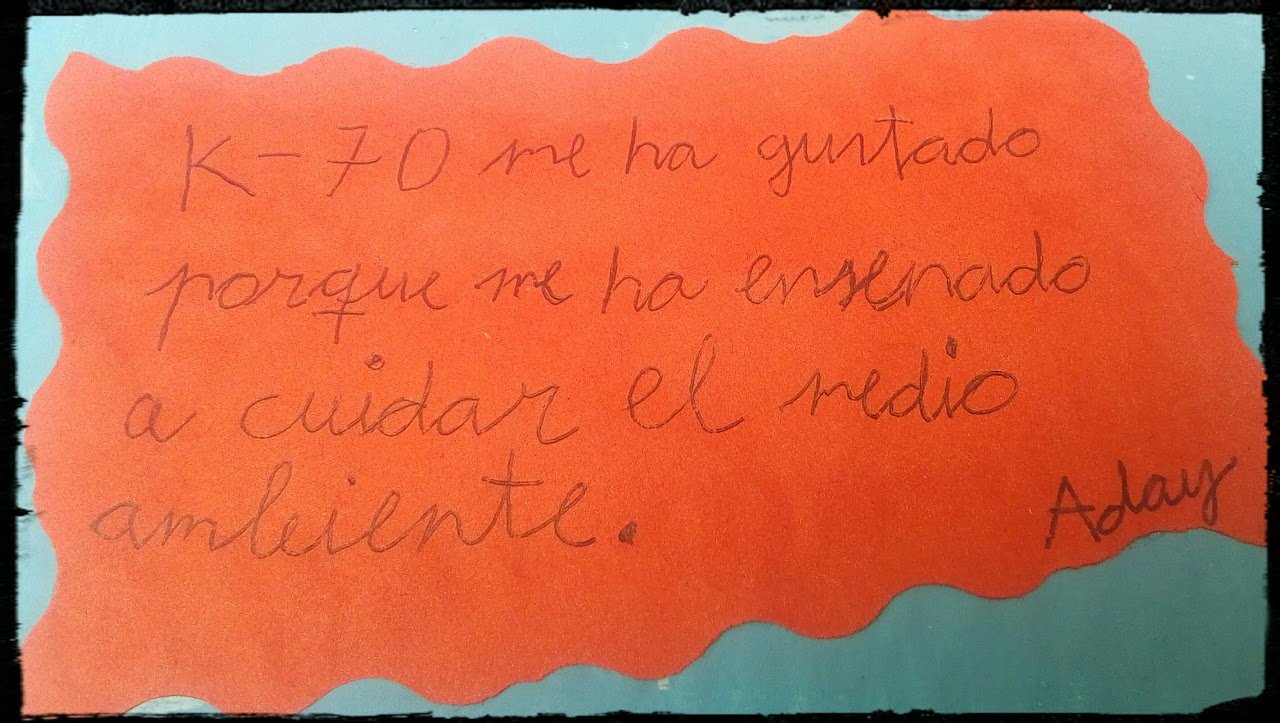 K-70 me ha gustado
porque me ha ensenado
a cuidar el medio
ambiente.
Aday